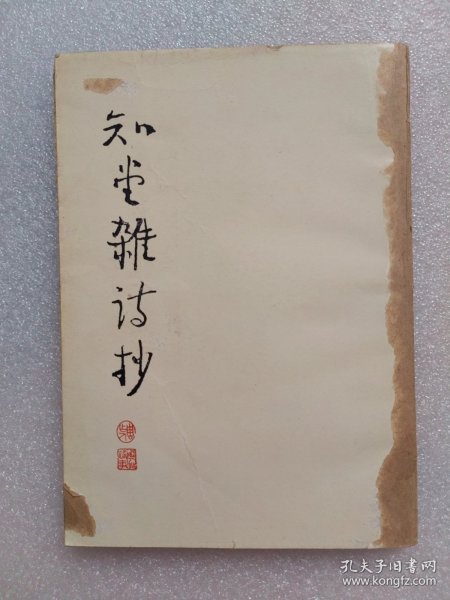 知堂雜诗抄
孔夫子旧书网
www.kongfz.com